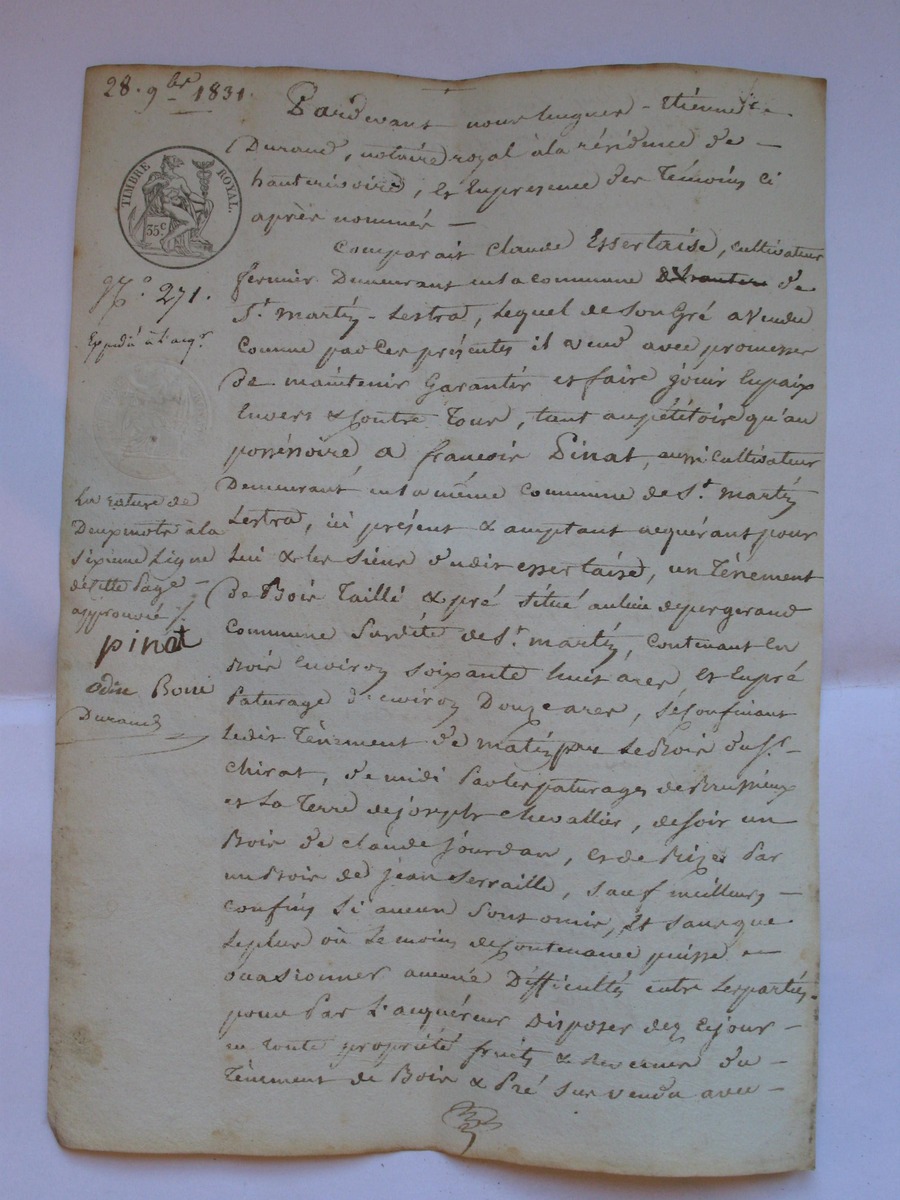 28. 9bre 1831.
TIMBRE ROYAL.
35c
N.° 271.
Expédié à l'acqr
La rature de
Deux mots à la
sixième Ligne
de cette Page
approuvée /.
pinat
Durand
Pardevant nous hugues-Etienne
Durand, notaire royal à la résidence de
hauterivoire, et En presence des Témoins ci
après nommés
Comparait Claude Essertaise, cultivateur
fermier Demeurant en la commune de
St martin-Lestra, Lequel de son Gré a vendu
Comme par Ces présentes il vend avec promesses
De maintenir Garantir et faire jouir En paix
Envers & Contre Tous, tant au pétitoire qu'au
possessoire a francois Pinat, aussi Cultivateur
Demeurant en la même commune de St martin
Lestra, ici présent & acceptant acquérant pour
Lui & les siens dudit essertaise, un Ténement
De Bois Taillé & pré situé au lieu de pergerand
Commune susdite de St martin, Contenant En
Bois Environ soixante huit ares et En pré
Paturage d'environ Douze ares, se Confinant
Ledit Ténement de matin par Le Bois du Sr
chirat, de midi Par les paturages de Brussieux
et La Terre de joseph chevallier, de soir un
Bois de claude jourdan, et de Bize Par
un Bois de jean serraille, sauf meilleurs
confins si aucun sont omis, Et sans que
Le plus où Le moins de Contenance puisse en
ocasionner aucune Difficultés entre Les parties.
pour Par L'acquéreur Disposer dez Ce jour
en Toute propriété fruits & revenus du
Ténement de Bois & Pré sus vendu avec